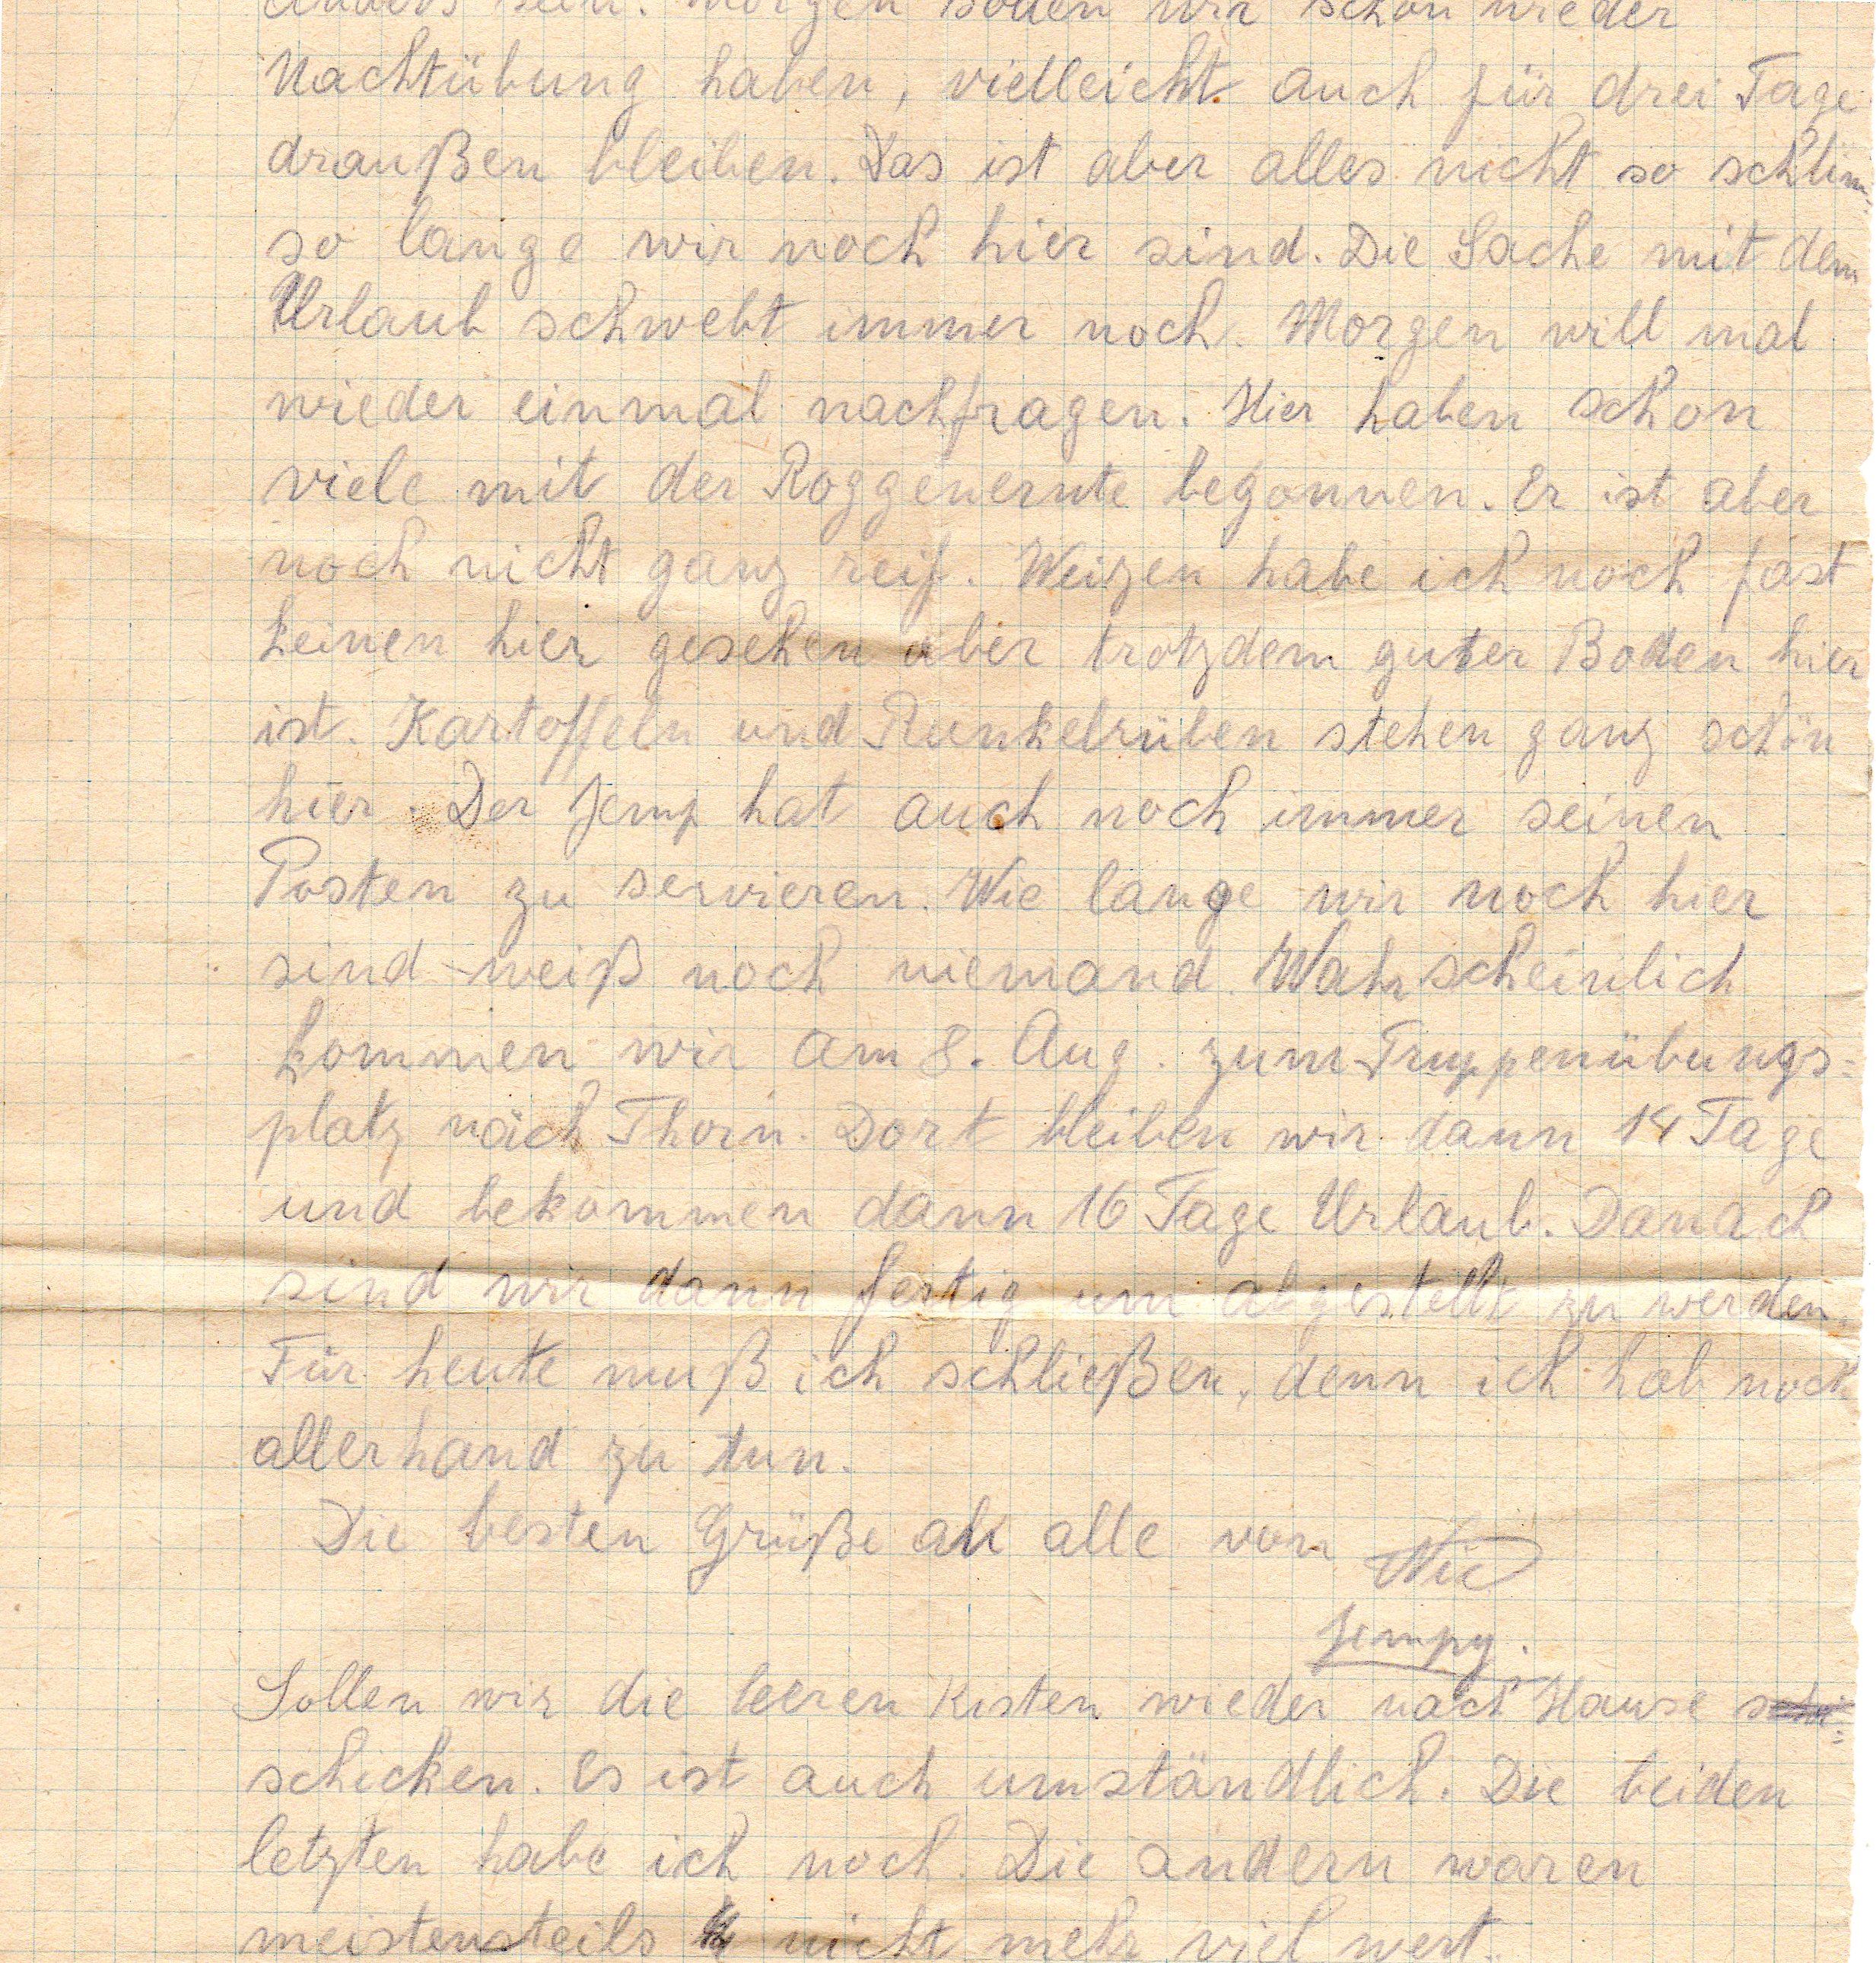 anders sein. Morgen sollen wir schon wieder
Nachtübung haben, vielleicht auch für drei Tage
draußen bleiben. Das ist aber alles nicht so schlim
so lange wir noch hier sind. Die Sache mit dem
Urlaub schwebt immer noch. Morgen will mal
wieder einmal nachfragen. Hier haben schon
viele mit der Roggenernte begonnen. Er ist aber
noch nicht ganz reif. Weizen habe ich noch fast
keinen hier gesehen aber trotzdem guter Boden hier
ist. Kartoffeln und Runkelrüben stehen ganz schön
hier. Der Jemp hat auch noch immer seinen
Posten zu servieren. Wie lange wir noch hier
sind weiß noch niemand. Wahrscheinlich
kommen wir am 8. Aug. zum Truppenübungs=
platz nach Thorn. Dort bleiben wir dann 14 Tage
und bekommen dann 16 Tage Urlaub. Danach
sind wir dann fertig um abgestellt zu werden.
Für heute muß ich schließen, denn ich hab noch
allerhand zu tun.
Die besten Grüße an alle von Nic
Jempy.
Sollen wir die leeren Kisten wieder nach Hause
schicken. Es ist auch umständlich. Die beiden
letzten habe ich noch. Die andern waren
meistensteils nicht mehr viel wert.